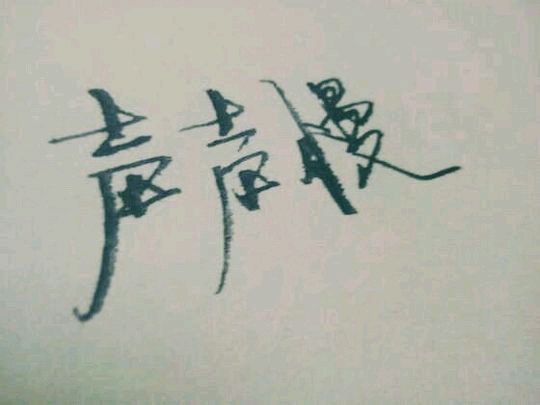 声声慢